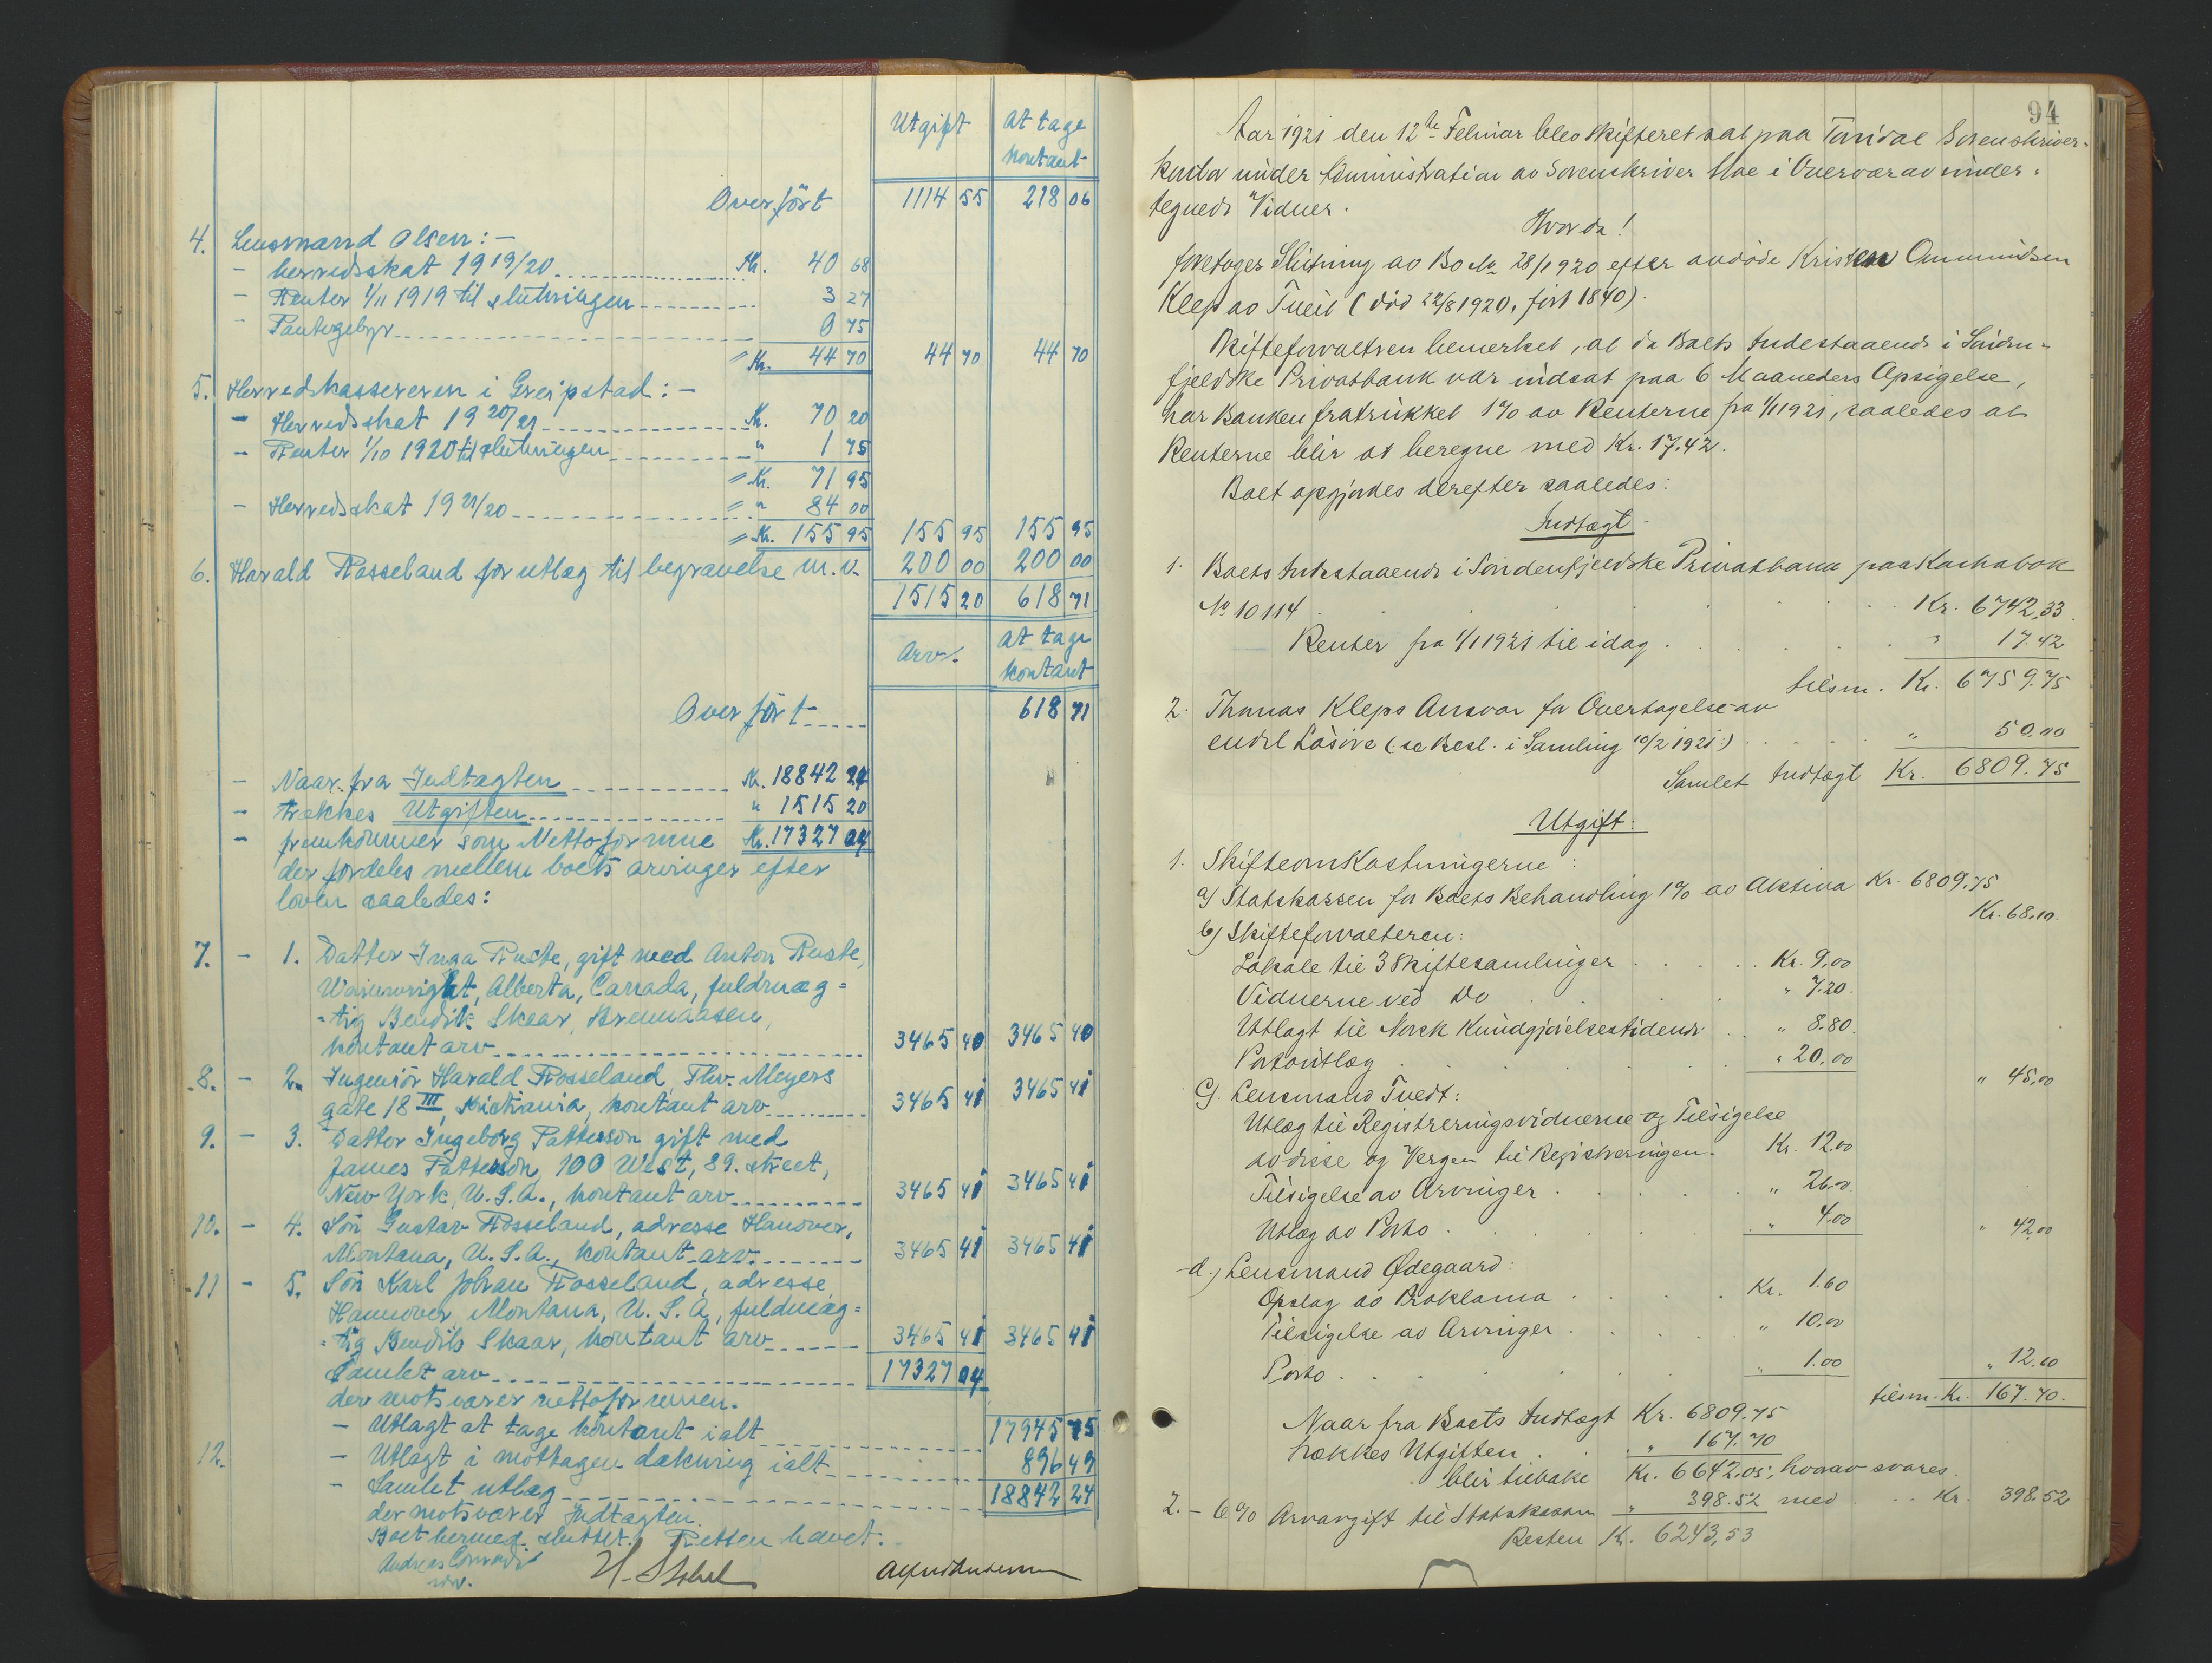 Utgift | At tage kontant
Overført 1114 55 | 218 06
4. Lensmand Olsen: -
- herredsskat 1919/20 Kr. 40 68
- Renter 1/11 1919 til slutningen 3 27
- Pantegebyr 0 75
= Kr. 44 70 | 44 70 | 44 70
5. Herredskassereren i Greipstad: -
- Herredsskat 1920/21 Kr. 70 20
- Renter 1/10 1920 til slutningen " 1 75
= Kr. 71 95
- Herredsskat 1921/20 = " 84 00
= Kr. 155 95 | 155 95 | 155 95
6. Harald Rosseland for utlæg til begravelse m.v. 200 00 | 200 00
1515 20 | 618 71
Arv. | At tage kontant
Overført 618 71
- Naar fra Indtægten Kr. 18842 24
- trækkes Utgiften " 1515 20
- fremkommer som Nettoformue Kr. 17327 04
der fordeles mellem boets arvinger efter
loven saaledes:
7. - 1. Datter Inga Ruste, gift med Anton Ruste,
Wainwright, Alberta, Canada, fuldmæg=
=tig Bendik Skaar, Brennaasen,
kontant arv 3465 40 | 3465 40
8. - 2. Ingeniør Harald Rosseland, Thv. Meyers
gate 18 III, Kristiania, kontant arv 3465 41 | 3465 41
9. - 3. Datter Ingeborg Patterson gift med
James Patterson, 100 West, 89. street,
New York, U.S.A., kontant arv 3465 41 | 3465 41
10. - 4. Søn Gustav Rosseland, adresse Hanover,
Montana, U.S.A., kontant arv 3465 41 | 3465 41
11 - 5. Søn Karl Johan Rosseland, adresse
Hannover, Montana, U.S.A, fuldmæg=
=tig Bendik Skaar, kontant arv 3465 41 | 3465 41
Samlet arv 17327 04
der motsvarer nettoformuen.
- Utlagt at tage kontant ialt 17945 75
12. - Utlagt i mottagen dækning ialt 896 49
- Samlet utlæg 18842 24
der motsvarer Indtægten.
Boet hermed sluttet. Retten hævet.
94
Aar 1921 den 12te Februar blev Skifteret sat paa Torridal Sorenskriver-
kontor under Administration av Sorenskriver Moe i Overvær av under-
tegnede Vidner.
Hvorda!
foretoges Slutning av Bo No 28/1920 efter avdøde Kristen Ommundsen
Klep av Tveit (død 22/8 1920, født 1840).
Skifteforvalteren bemerket, at da Boets Indestaaende i Sønden-
fjeldske Privatbank var indsat paa 6 Maaneders Opsigelse,
har Banken fratrukket 1% av Renterne fra 1/1 1921, saaledes at
Renterne blir at beregne med Kr. 17.42.
Boet opgjordes derefter saaledes:
Indtægt
1. Boets Indestaaende i Søndenfjeldske Privatbank paa Kontrabok
No 10114 Kr. 6742,33
Renter fra 1/1 1921 til idag " 17.42
tilsm. Kr. 6759.75
2. Thomas Kleps Ansvar for Overtagelse av
endel Løsøre (: se Besl. i Samling 10/2 1921:) " 50.00
Samlet Indtægt Kr. 6809.75
Utgift:
1. Skifteomkostningerne:
a) Statskassen for Boets Behandling 1% av Aktiva Kr. 6809.75
Kr. 68.10
b) Skifteforvalteren:
Lokale til 3 Skiftesamlinger Kr. 9,00
Vidnerne ved Do " 7.20
Utlagt til Norsk Kundgjørelsestidende " 8.80
Portoutlæg " 20.00
" 45,00
c). Lensmand Tvedt:
Utlæg til Registreringsvidnerne og Tilsigelse
av disse og Vergen til Registreringen. Kr. 12.00
Tilsigelse av Arvinger " 26.00
Utlæg av Porto " 4.00 " 42,00
d.) Lensmand Ødegaard:
Opslag av Proklama Kr. 1.60
Tilsigelse av Arvinger " 10.00
Porto " 1.00 " 12.60
tilsm. Kr. 167.70.
Naar fra Boets Indtægt Kr. 6809.75
trækkes Utgiften " 167.70
blir tilbake Kr. 6642,05, hvorav svares
2. - 6% Arvavgift til Statskassen " 398.52 med Kr. 398.52
Resten Kr. 6243,53